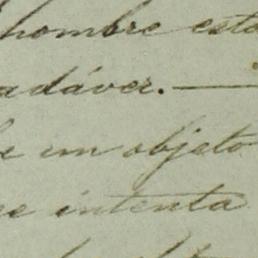 hombre esta
adáver. —
e un objeto
e intenta